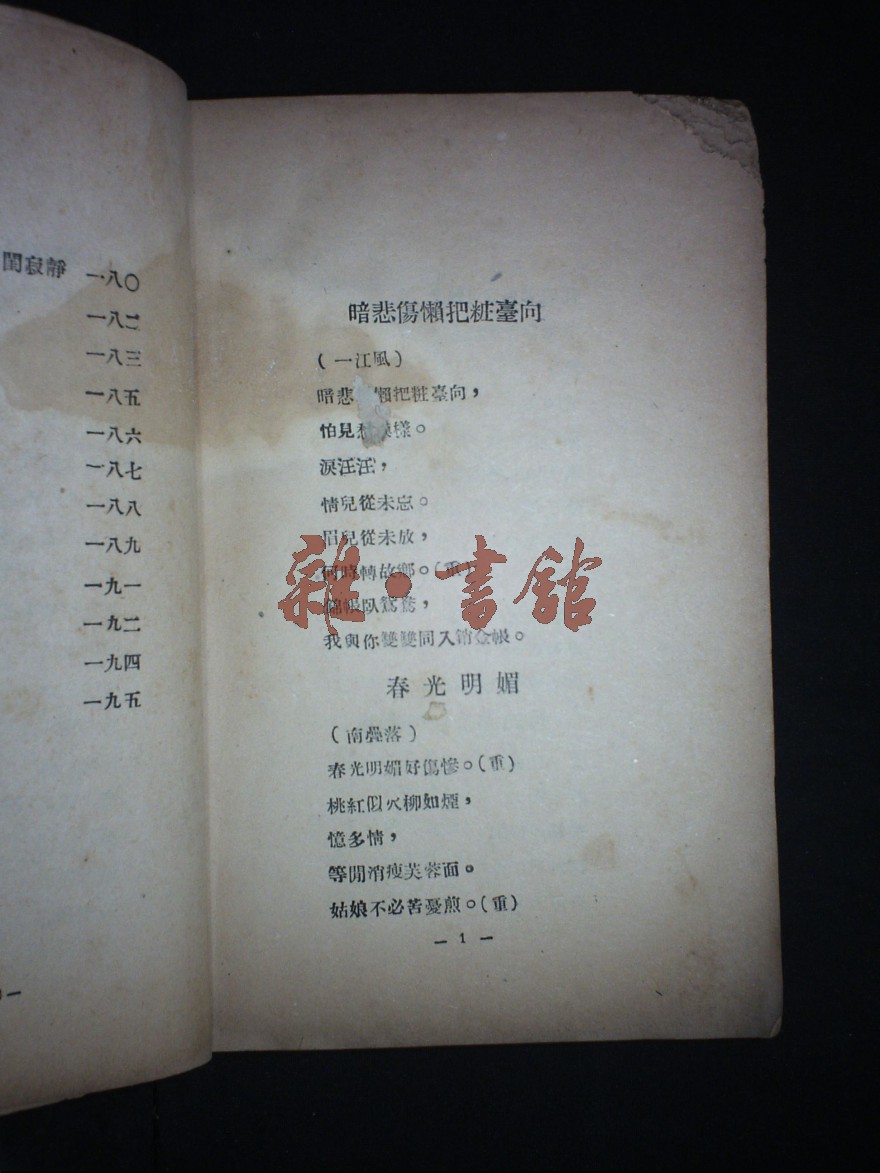 閨寂靜 一八〇
一八二
一八三
一八五
一八六
一八七
一八八
一八九
一九一
一九二
一九四
一九五
暗悲傷懶把粧臺向
(一江風)
暗悲 懶把粧臺向，
怕見 模樣。
淚汪汪，
情兒從未忘。
眉兒從未放，
何時轉故鄉。(重)
錦帳臥鴛鴦，
我與你雙雙同入銷金帳。
春光明媚
(南疊落)
春光明媚好傷慘。(重)
桃紅似火柳如煙，
憶多情，
等閒消瘦芙蓉面。
姑娘不必苦憂煎。(重)
— 1 —
雜·書館